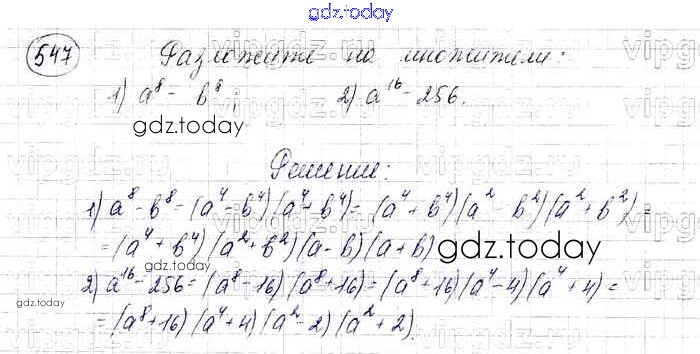 gdz.today
547 Разложите на множители:
1) a⁸ - b⁸; 2) a¹⁶ - 256.
gdz.today
Решение:
1) a⁸ - b⁸ = (a⁴ - b⁴)(a⁴ + b⁴) = (a⁴ + b⁴)(a² - b²)(a² + b²) =
= (a⁴ + b⁴)(a² + b²)(a - b)(a + b)
gdz.today
gdz.today
2) a¹⁶ - 256 = (a⁸ - 16)(a⁸ + 16) = (a⁸ + 16)(a⁴ - 4)(a⁴ + 4) =
= (a⁸ + 16)(a⁴ + 4)(a² - 2)(a² + 2).